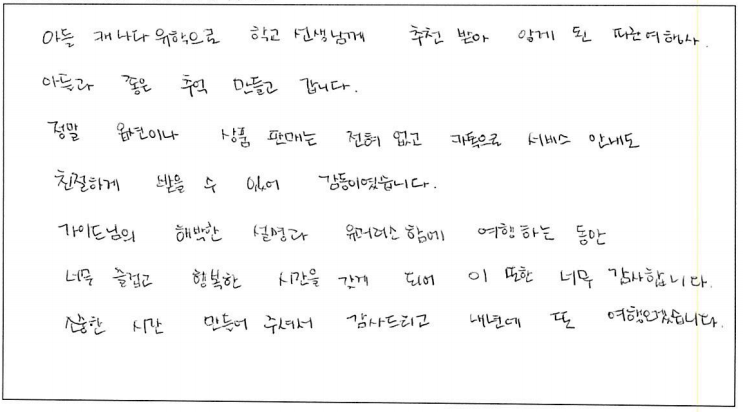 아들 캐나다 유학으로 학교 선생님께 추천 받아 알게 된 파란여행사.
아들과 좋은 추억 만들고 갑니다.
정말 옵션이나 상품 판매는 전혀 없고 카톡으로 서비스 안내도
친절하게 받을 수 있어 감동이였습니다.
가이드님의 해박한 설명과 유머러스함에 여행하는 동안
너무 즐겁고 행복한 시간을 갖게 되어 이 또한 너무 감사합니다.
소중한 시간 만들어 주셔서 감사드리고 내년에 또 여행오겠습니다.